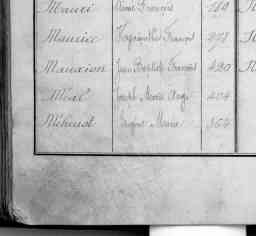 Mauxi François 219
Maurice Hyacinthe François 278
Mauxion Jean Baptiste François 420
Méal Joseph Marie Ange 404
Méhust Marie 364